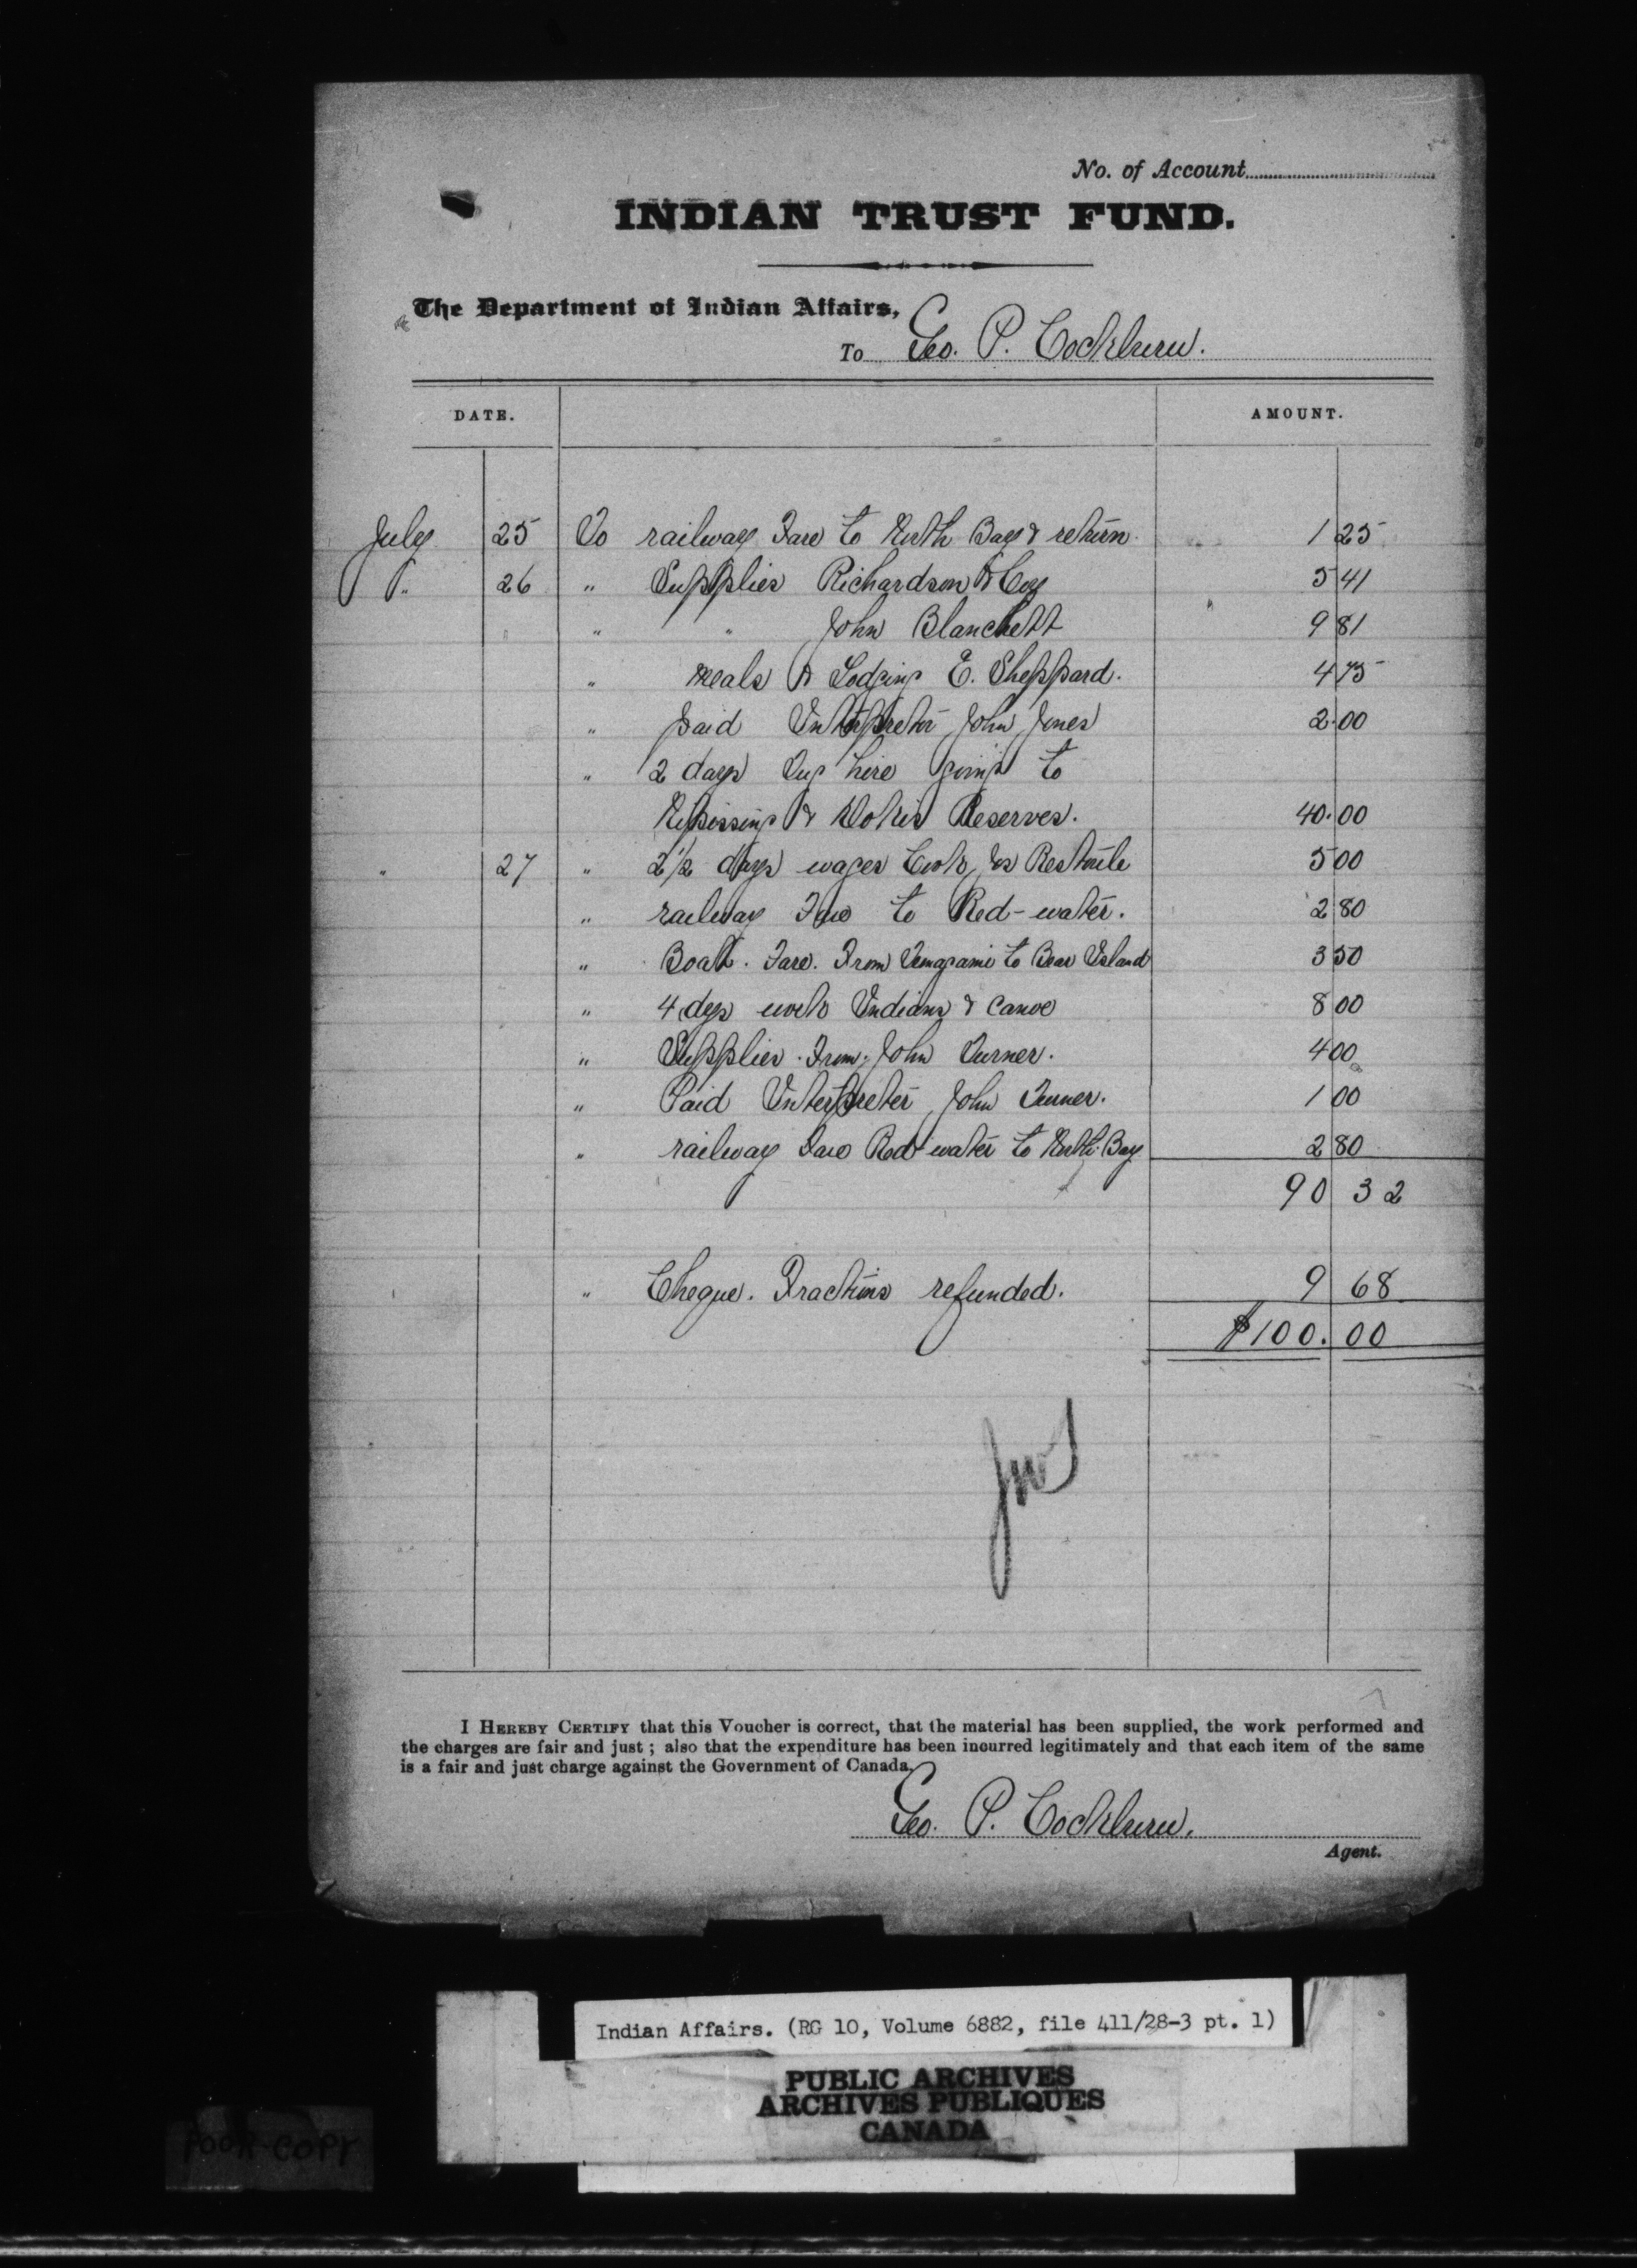 No. of Account
INDIAN TRUST FUND.
The Department of Indian Affairs,
To Geo. P. Cockburn.
DATE. AMOUNT.
July 25 To railway Fare to North Bay & return 1 25
" 26 " Supplies Richardson & Coy 5 41
" " John Blanchett 9 81
" meals & Lodging E. Sheppard. 4 75
" paid Interpreter John Jones 2.00
" 2 days Tug hire going to
Nipissing & Dokis Reserves. 40.00
" 27 " 2 1/2 days wages Cook Restoule 5 00
" railway Fare to Red-water. 2 80
" Boat. Fare. From Temagami to Bear Island 3 50
" 4 days work Indians & Canoe 8 00
" Supplies. From. John Turner. 4 00
" Paid Interpreter John Turner. 1 00
" railway Fare Red water to North Bay 2 80
90 32
" Cheque. Fractions refunded. 9 68
$100.00
I HEREBY CERTIFY that this Voucher is correct, that the material has been supplied, the work performed and
the charges are fair and just ; also that the expenditure has been incurred legitimately and that each item of the same
is a fair and just charge against the Government of Canada.
Geo. P. Cockburn.
Agent.
Indian Affairs. (RG 10, Volume 6882, file 411/28-3 pt. 1)
PUBLIC ARCHIVES
ARCHIVES PUBLIQUES
CANADA
POOR COPY